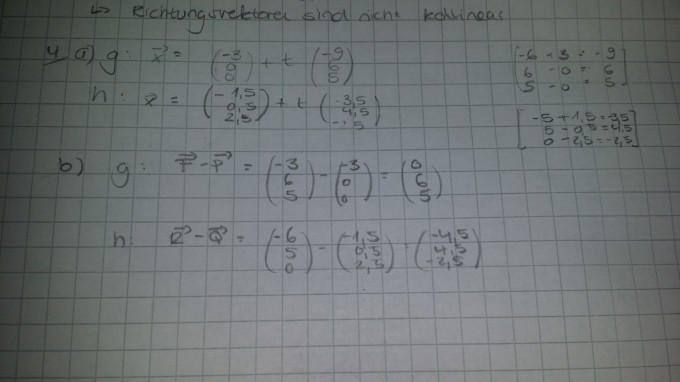 ↳ Richtungsvektoren sind nicht kollinear
4 a) g: x⃗ = (-3 0 0) + t (-9 6 5) [-6 - 3 = -9 6 - 0 = 6 5 - 0 = 5]
h: x⃗ = (-1,5 0,5 2,5) + t (-3,5 4,5 5) [-5 + 1,5 = 3,5 5 - 0,5 = 4,5 0 - 2,5 = -2,5]
b) g: - = (-3 6 5) - (-3 0 0) = (0 6 5)
h: - = (-6 5 0) - (-1,5 0,5 2,5) = (-4,5 4,5 -2,5)